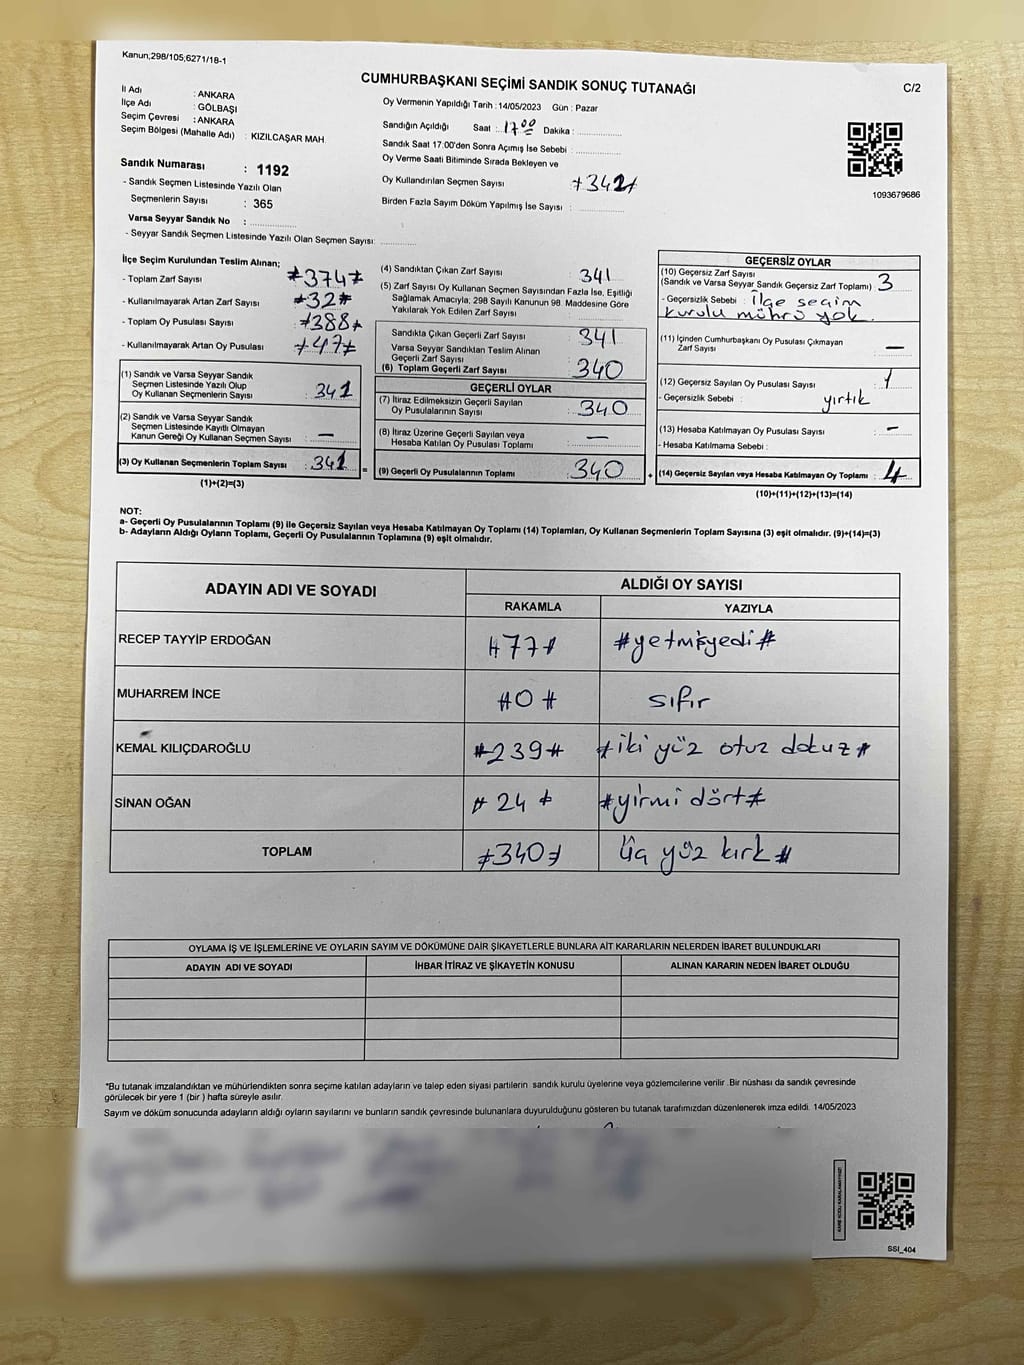 Kanun;298/105;6271/18-1
CUMHURBAŞKANI SEÇİMİ SANDIK SONUÇ TUTANAĞI
C/2
İl Adı : ANKARA
İlçe Adı : GÖLBAŞI
Seçim Çevresi : ANKARA
Seçim Bölgesi (Mahalle Adı) : KIZILCAŞAR MAH
Sandık Numarası : 1192
- Sandık Seçmen Listesinde Yazılı Olan
Seçmenlerin Sayısı : 365
Varsa Seyyar Sandık No :
- Seyyar Sandık Seçmen Listesinde Yazılı Olan Seçmen Sayısı:
Oy Vermenin Yapıldığı Tarih : 14/05/2023 Gün : Pazar
Sandığın Açıldığı Saat : 17 00 Dakika :
Sandık Saat 17:00'den Sonra Açımış İse Sebebi :
Oy Verme Saati Bitiminde Sırada Bekleyen ve
Oy Kullandırılan Seçmen Sayısı ≠342≠
Birden Fazla Sayım Döküm Yapılmış İse Sayısı :
1093679686
İlçe Seçim Kurulundan Teslim Alınan;
- Toplam Zarf Sayısı ≠374≠
- Kullanılmayarak Artan Zarf Sayısı ≠32≠
- Toplam Oy Pusulası Sayısı ≠388≠
- Kullanılmayarak Artan Oy Pusulası ≠47≠
(1) Sandık ve Varsa Seyyar Sandık
Seçmen Listesinde Yazılı Olup
Oy Kullanan Seçmenlerin Sayısı : 341
(2) Sandık ve Varsa Seyyar Sandık
Seçmen Listesinde Kayıtlı Olmayan
Kanun Gereği Oy Kullanan Seçmen Sayısı : —
(3) Oy Kullanan Seçmenlerin Toplam Sayısı : 341
(1)+(2)=(3)
(4) Sandıktan Çıkan Zarf Sayısı : 341
(5) Zarf Sayısı Oy Kullanan Seçmen Sayısından Fazla İse, Eşitliği
Sağlamak Amacıyla; 298 Sayılı Kanunun 98. Maddesine Göre
Yakılarak Yok Edilen Zarf Sayısı :
Sandıkta Çıkan Geçerli Zarf Sayısı : 341
Varsa Seyyar Sandıktan Teslim Alınan
Geçerli Zarf Sayısı :
(6) Toplam Geçerli Zarf Sayısı : 340
GEÇERLİ OYLAR
(7) İtiraz Edilmeksizin Geçerli Sayılan
Oy Pusulalarının Sayısı : 340
(8) İtiraz Üzerine Geçerli Sayılan veya
Hesaba Katılan Oy Pusulası Toplamı : —
= (9) Geçerli Oy Pusulalarının Toplamı : 340 +
GEÇERSİZ OYLAR
(10) Geçersiz Zarf Sayısı
(Sandık ve Varsa Seyyar Sandık Geçersiz Zarf Toplamı) : 3
- Geçersizlik Sebebi : İlçe seçim
kurulu mührü yok.
(11) İçinden Cumhurbaşkanı Oy Pusulası Çıkmayan
Zarf Sayısı : —
(12) Geçersiz Sayılan Oy Pusulası Sayısı : 1
- Geçersizlik Sebebi : yırtık
(13) Hesaba Katılmayan Oy Pusulası Sayısı : —
- Hesaba Katılmama Sebebi :
(14) Geçersiz Sayılan veya Hesaba Katılmayan Oy Toplamı : 4
(10)+(11)+(12)+(13)=(14)
NOT:
a- Geçerli Oy Pusulalarının Toplamı (9) ile Geçersiz Sayılan veya Hesaba Katılmayan Oy Toplamı (14) Toplamları, Oy Kullanan Seçmenlerin Toplam Sayısına (3) eşit olmalıdır. (9)+(14)=(3)
b- Adayların Aldığı Oyların Toplamı, Geçerli Oy Pusulalarının Toplamına (9) eşit olmalıdır.
ADAYIN ADI VE SOYADI
ALDIĞI OY SAYISI
RAKAMLA YAZIYLA
RECEP TAYYİP ERDOĞAN #77# #yetmişyedi#
MUHARREM İNCE #0# sıfır
KEMAL KILIÇDAROĞLU #239# #iki yüz otuz dokuz#
SİNAN OĞAN #24# #yirmi dört#
TOPLAM ≠340≠ Üç yüz kırk#
OYLAMA İŞ VE İŞLEMLERİNE VE OYLARIN SAYIM VE DÖKÜMÜNE DAİR ŞİKAYETLERLE BUNLARA AİT KARARLARIN NELERDEN İBARET BULUNDUKLARI
ADAYIN ADI VE SOYADI İHBAR İTİRAZ VE ŞİKAYETİN KONUSU ALINAN KARARIN NEDEN İBARET OLDUĞU
*Bu tutanak imzalandıktan ve mühürlendikten sonra seçime katılan adayların ve talep eden siyasi partilerin sandık kurulu üyelerine veya gözlemcilerine verilir .Bir nüshası da sandık çevresinde
görülecek bir yere 1 (bir ) hafta süreyle asılır.
Sayım ve döküm sonucunda adayların aldığı oyların sayılarını ve bunların sandık çevresinde bulunanlara duyurulduğunu gösteren bu tutanak tarafımızdan düzenlenerek imza edildi. 14/05/2023
SSI_404